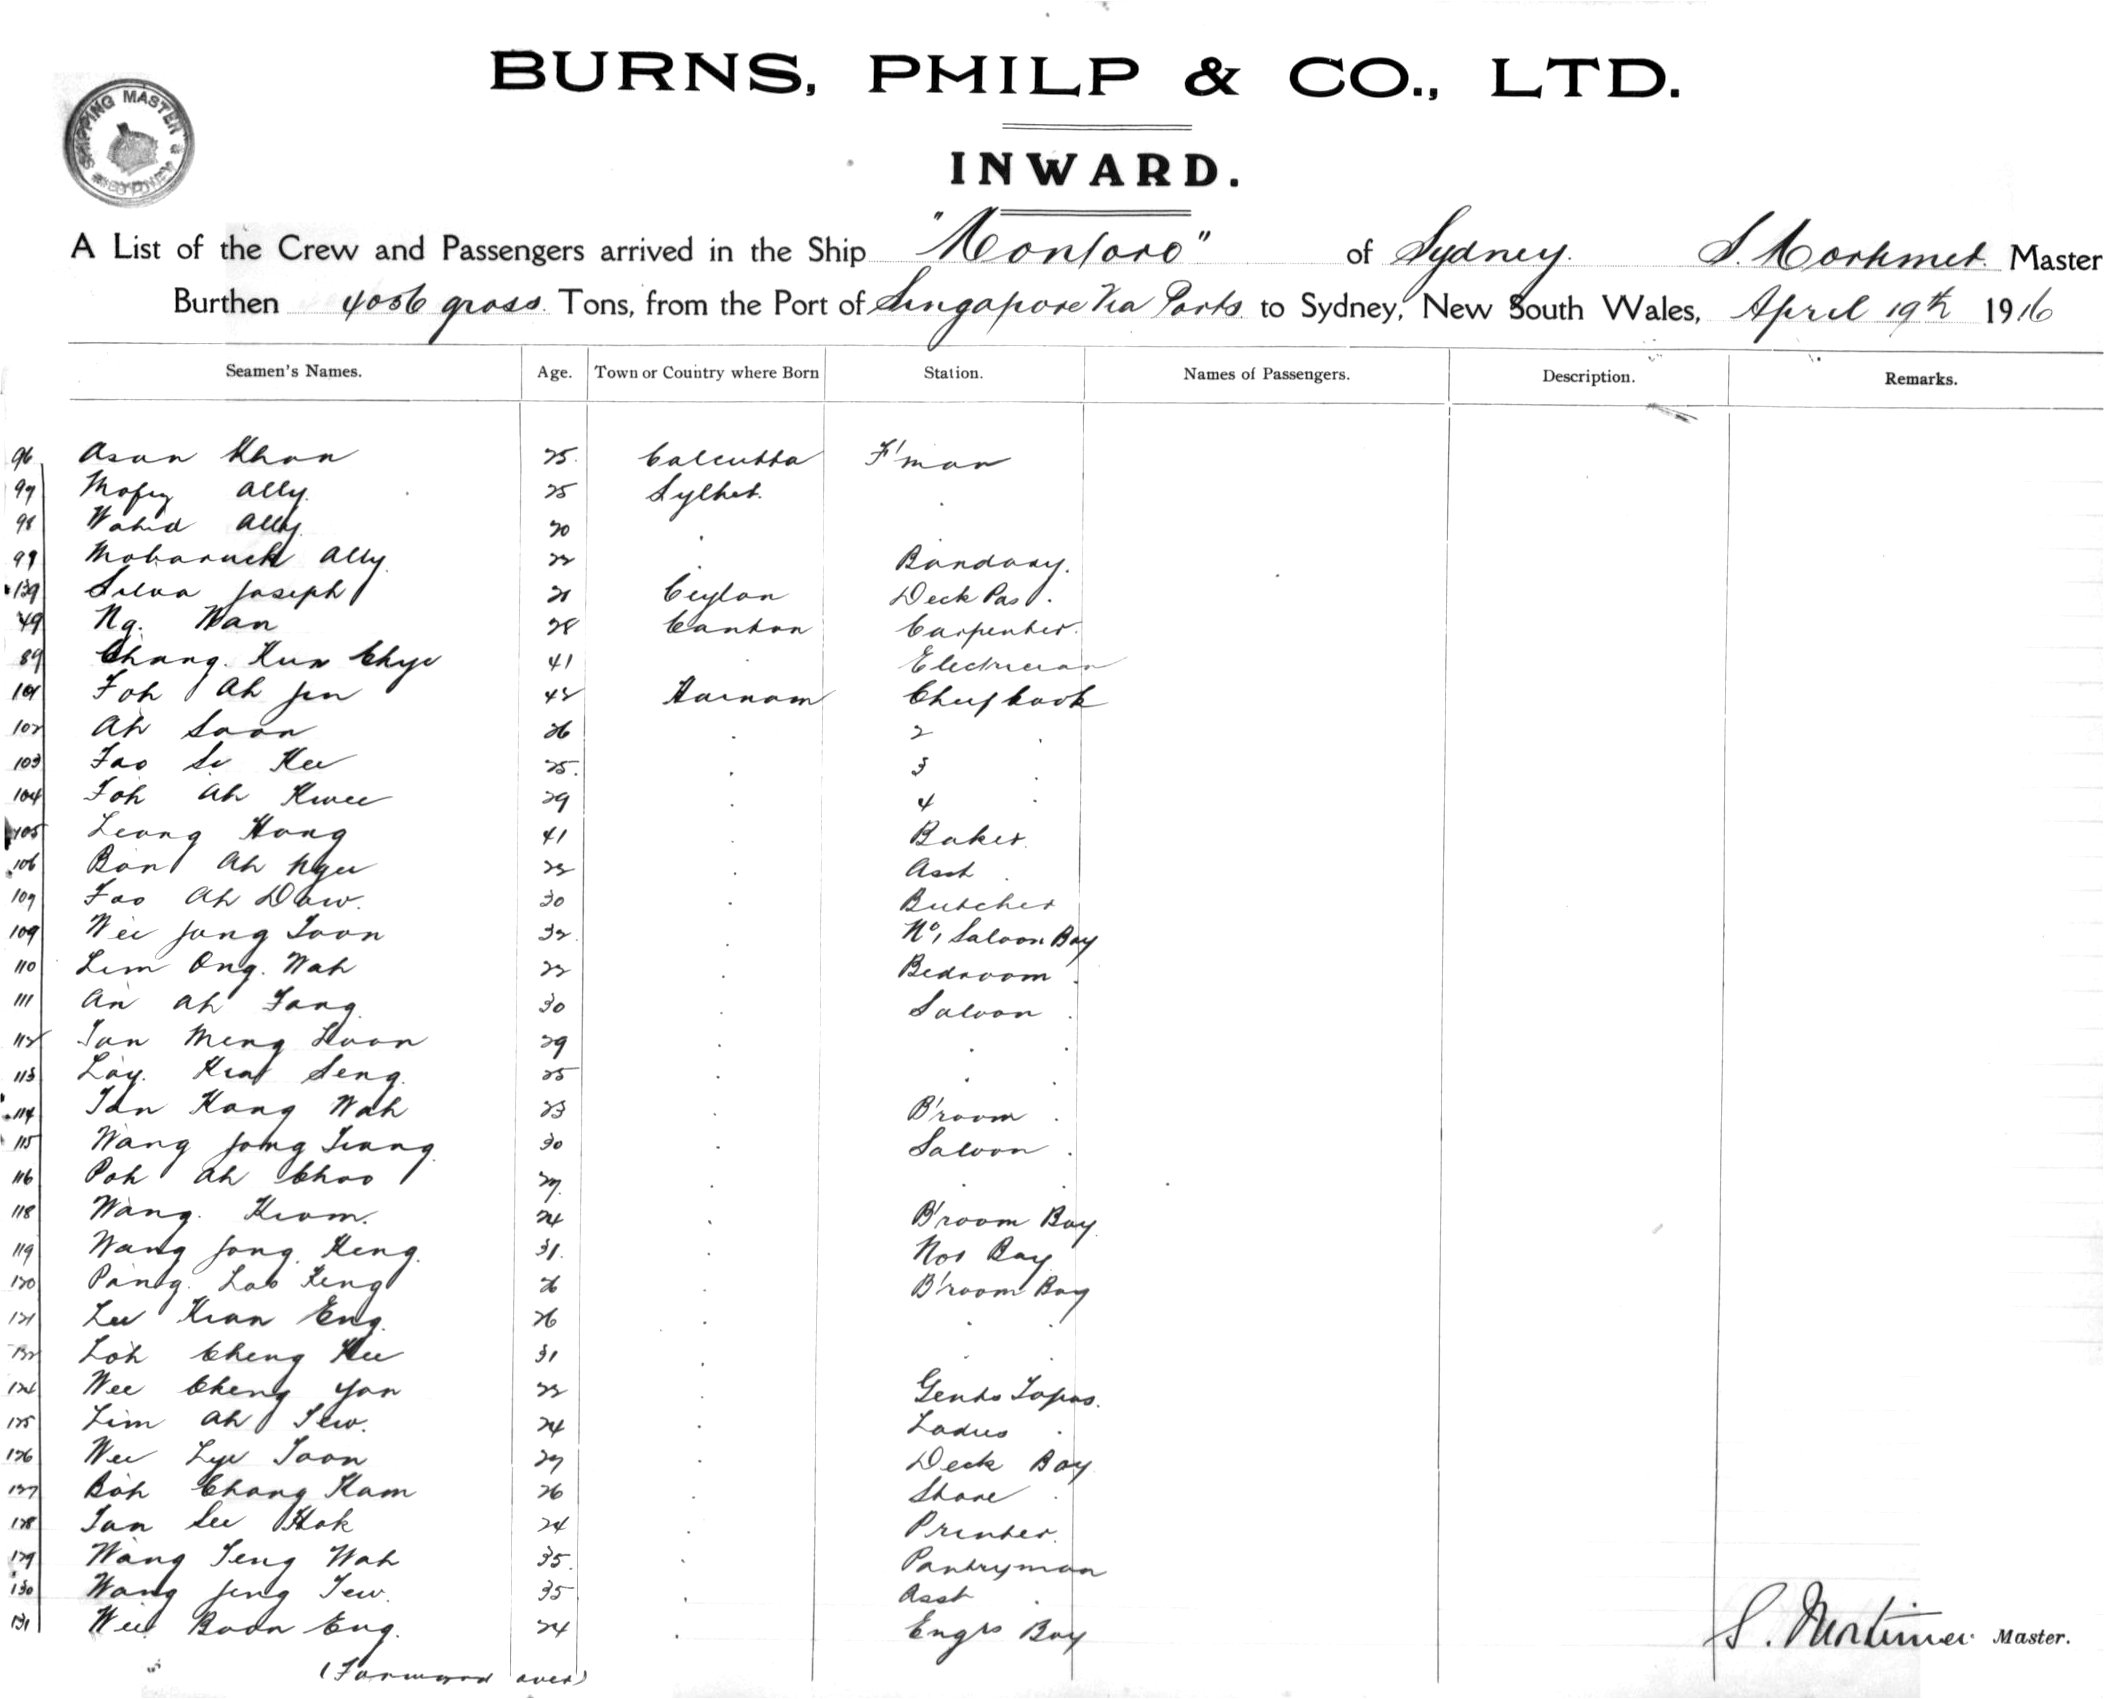 BURNS, PHILP & CO., LTD.
INWARD.
SHIPPING MASTER'S
A List of the Crew and Passengers arrived in the Ship "Montoro" of Sydney. S. Mortimer. Master
Burthen 4056 gross. Tons, from the Port of Singapore Via Ports to Sydney, New South Wales, April 19th 1916
Seamen's Names. Age. Town or Country where Born Station. Names of Passengers. Description. Remarks.
96 Asan Khan 25. Calcutta F'man
97 Mofiz Ally. 25 Sylhet. .
98 Wahid Ally. 20 .
99 Mobaruck Ally. 22 . Bandary.
139 Silva Joseph 21 Ceylon Deck Pas.
49 Ng. Wan 28 Canton Carpenter.
89 Chang. Kun Chye 41 . Electrician
101 Foh Ah Jin 42 Hainam Chief Cook
102 Ah Soon 26 . 2 .
103 Foo Si Kee 25. . 3 .
104 Foh Ah Kwee 29 . 4 .
105 Leong Hong 41 . Baker.
106 Bon Ah Ngee 22 . Asst .
107 Foo Ah Dow. 30 . Butcher
109 Wee Jong Toon 32. . No 1 Saloon Boy
110 Lim Ong. Wah 22 . Bedroom .
111 An Ah Fong. 30 . Saloon .
112 Tan Meng Loon 29 . . .
113 Loy. Kia Seng. 25 . . .
114 Tan Kong Wah 23 . B'room .
115 Wang Jong Tiang. 30 . Saloon .
116 Poh Ah Choo 27. . . .
118 Wang. Kiom. 24 . B'room Boy
119 Wang Jong. Keng. 31. . Nos Boy
120 Pang. Lao Keng 26 . B'room Boy
121 Lee Kian Eng. 26 . . .
122 Loh Cheng Kee 31 . . .
124 Wee Cheng Yan 22 . Gents Topas.
125 Lim Ah Siew. 24 . Ladies .
126 Wee Lye Toon 27 . Deck Boy
127 Boh Chong Kam 26 . Store .
128 Tan See Hok 24 . Printer.
129 Wang Teng Wah 35. . Pantryman
130 Wang Jeng Tew. 35 . Asst .
131 Wee Boon Eng. 24 . Engrs Boy
S. Mortimer Master.
(Forward over)